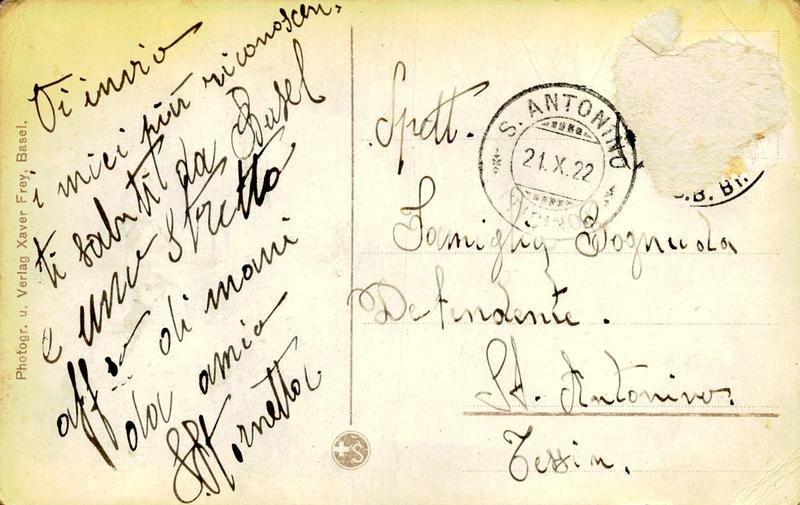 Vi invio
i miei più riconoscen,
ti saluti da Basel
e una stretta
di mani
da amica
Photogr. u. Verlag Xaver Frey, Basel.
S. ANTONINO
21.X.22
(TICINO)
S
Spett.
Famiglia Dognuda
Defendente.
St. Antonino.
Tessin.